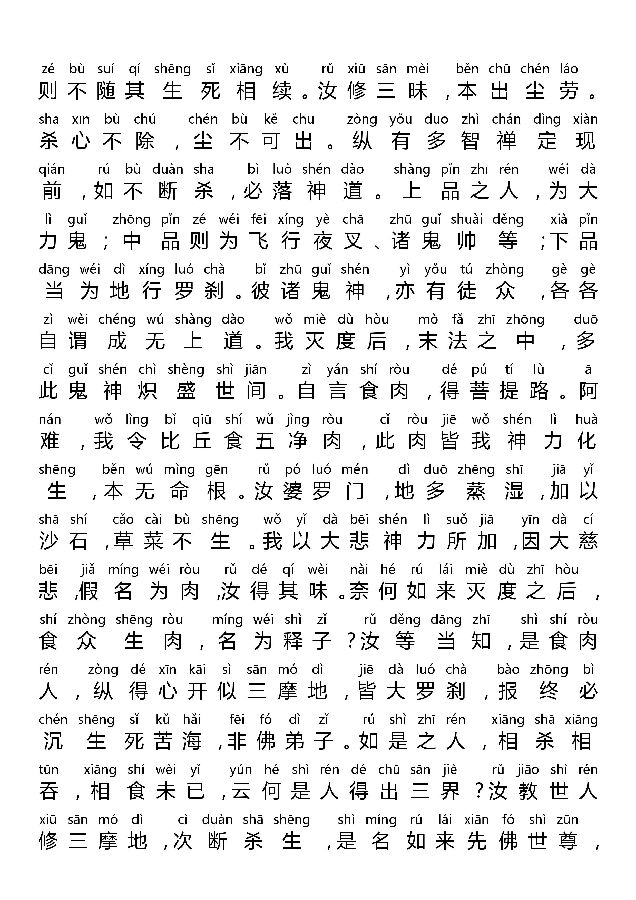 zé bù suí qí shēng sǐ xiāng xù rǔ xiū sān mèi běn chū chén láo
则不随其生死相续。汝修三昧,本出尘劳。
sha xin bù chú chén bù kě chu zòng yǒu duo zhì chán dìng xiàn
杀心不除,尘不可出。纵有多智禅定现
qián rú bù duàn sha bì luò shén dào shàng pǐn zhi rén wéi dà
前,如不断杀,必落神道。上品之人,为大
lì guǐ zhōng pǐn zé wéi fēi xíng yè chā zhū guǐ shuài děng xià pǐn
力鬼;中品则为飞行夜叉、诸鬼帅等;下品
dāng wéi dì xíng luó chà bǐ zhū guǐ shén yì yǒu tú zhòng gè gè
当为地行罗刹。彼诸鬼神,亦有徒众,各各
zì wèi chéng wú shàng dào wǒ miè dù hòu mò fǎ zhī zhōng duō
自谓成无上道。我灭度后,末法之中,多
cǐ guǐ shén chì shèng shì jiān zì yán shí ròu dé pú tí lù ā
此鬼神炽盛世间。自言食肉,得菩提路。阿
nán wǒ lìng bǐ qiū shí wǔ jìng ròu cǐ ròu jiē wǒ shén lì huà
难,我令比丘食五净肉,此肉皆我神力化
shēng běn wú mìng gēn rǔ pó luó mén dì duō zhēng shī jiā yǐ
生,本无命根。汝婆罗门,地多蒸湿,加以
shā shí cǎo cài bù shēng wǒ yǐ dà bēi shén lì suǒ jiā yīn dà cí
沙石,草菜不生。我以大悲神力所加,因大慈
bēi jiǎ míng wéi ròu rǔ dé qí wèi nài hé rú lái miè dù zhī hòu
悲,假名为肉,汝得其味。奈何如来灭度之后,
shí zhòng shēng ròu míng wéi shì zǐ rǔ děng dāng zhī shì shí ròu
食众生肉,名为释子?汝等当知,是食肉
rén zòng dé xīn kāi sì sān mó dì jiē dà luó chà bào zhōng bì
人,纵得心开似三摩地,皆大罗刹,报终必
chén shēng sǐ kǔ hǎi fēi fó dì zǐ rú shì zhī rén xiāng shā xiāng
沉生死苦海,非佛弟子。如是之人,相杀相
tūn xiāng shí wèi yǐ yún hé shì rén dé chū sān jiè rǔ jiāo shì rén
吞,相食未已,云何是人得出三界?汝教世人
xiū sān mó dì cì duàn shā shēng shì míng rú lái xiān fó shì zūn
修三摩地,次断杀生,是名如来先佛世尊,